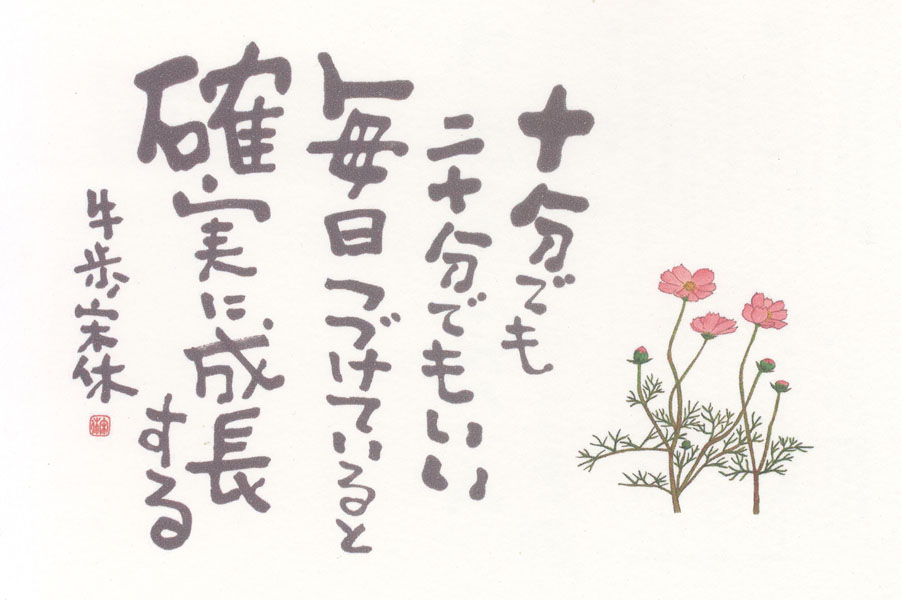 十分でも
二十分でもいい
毎日つづけていると
確実に成長
する
牛歩宗休